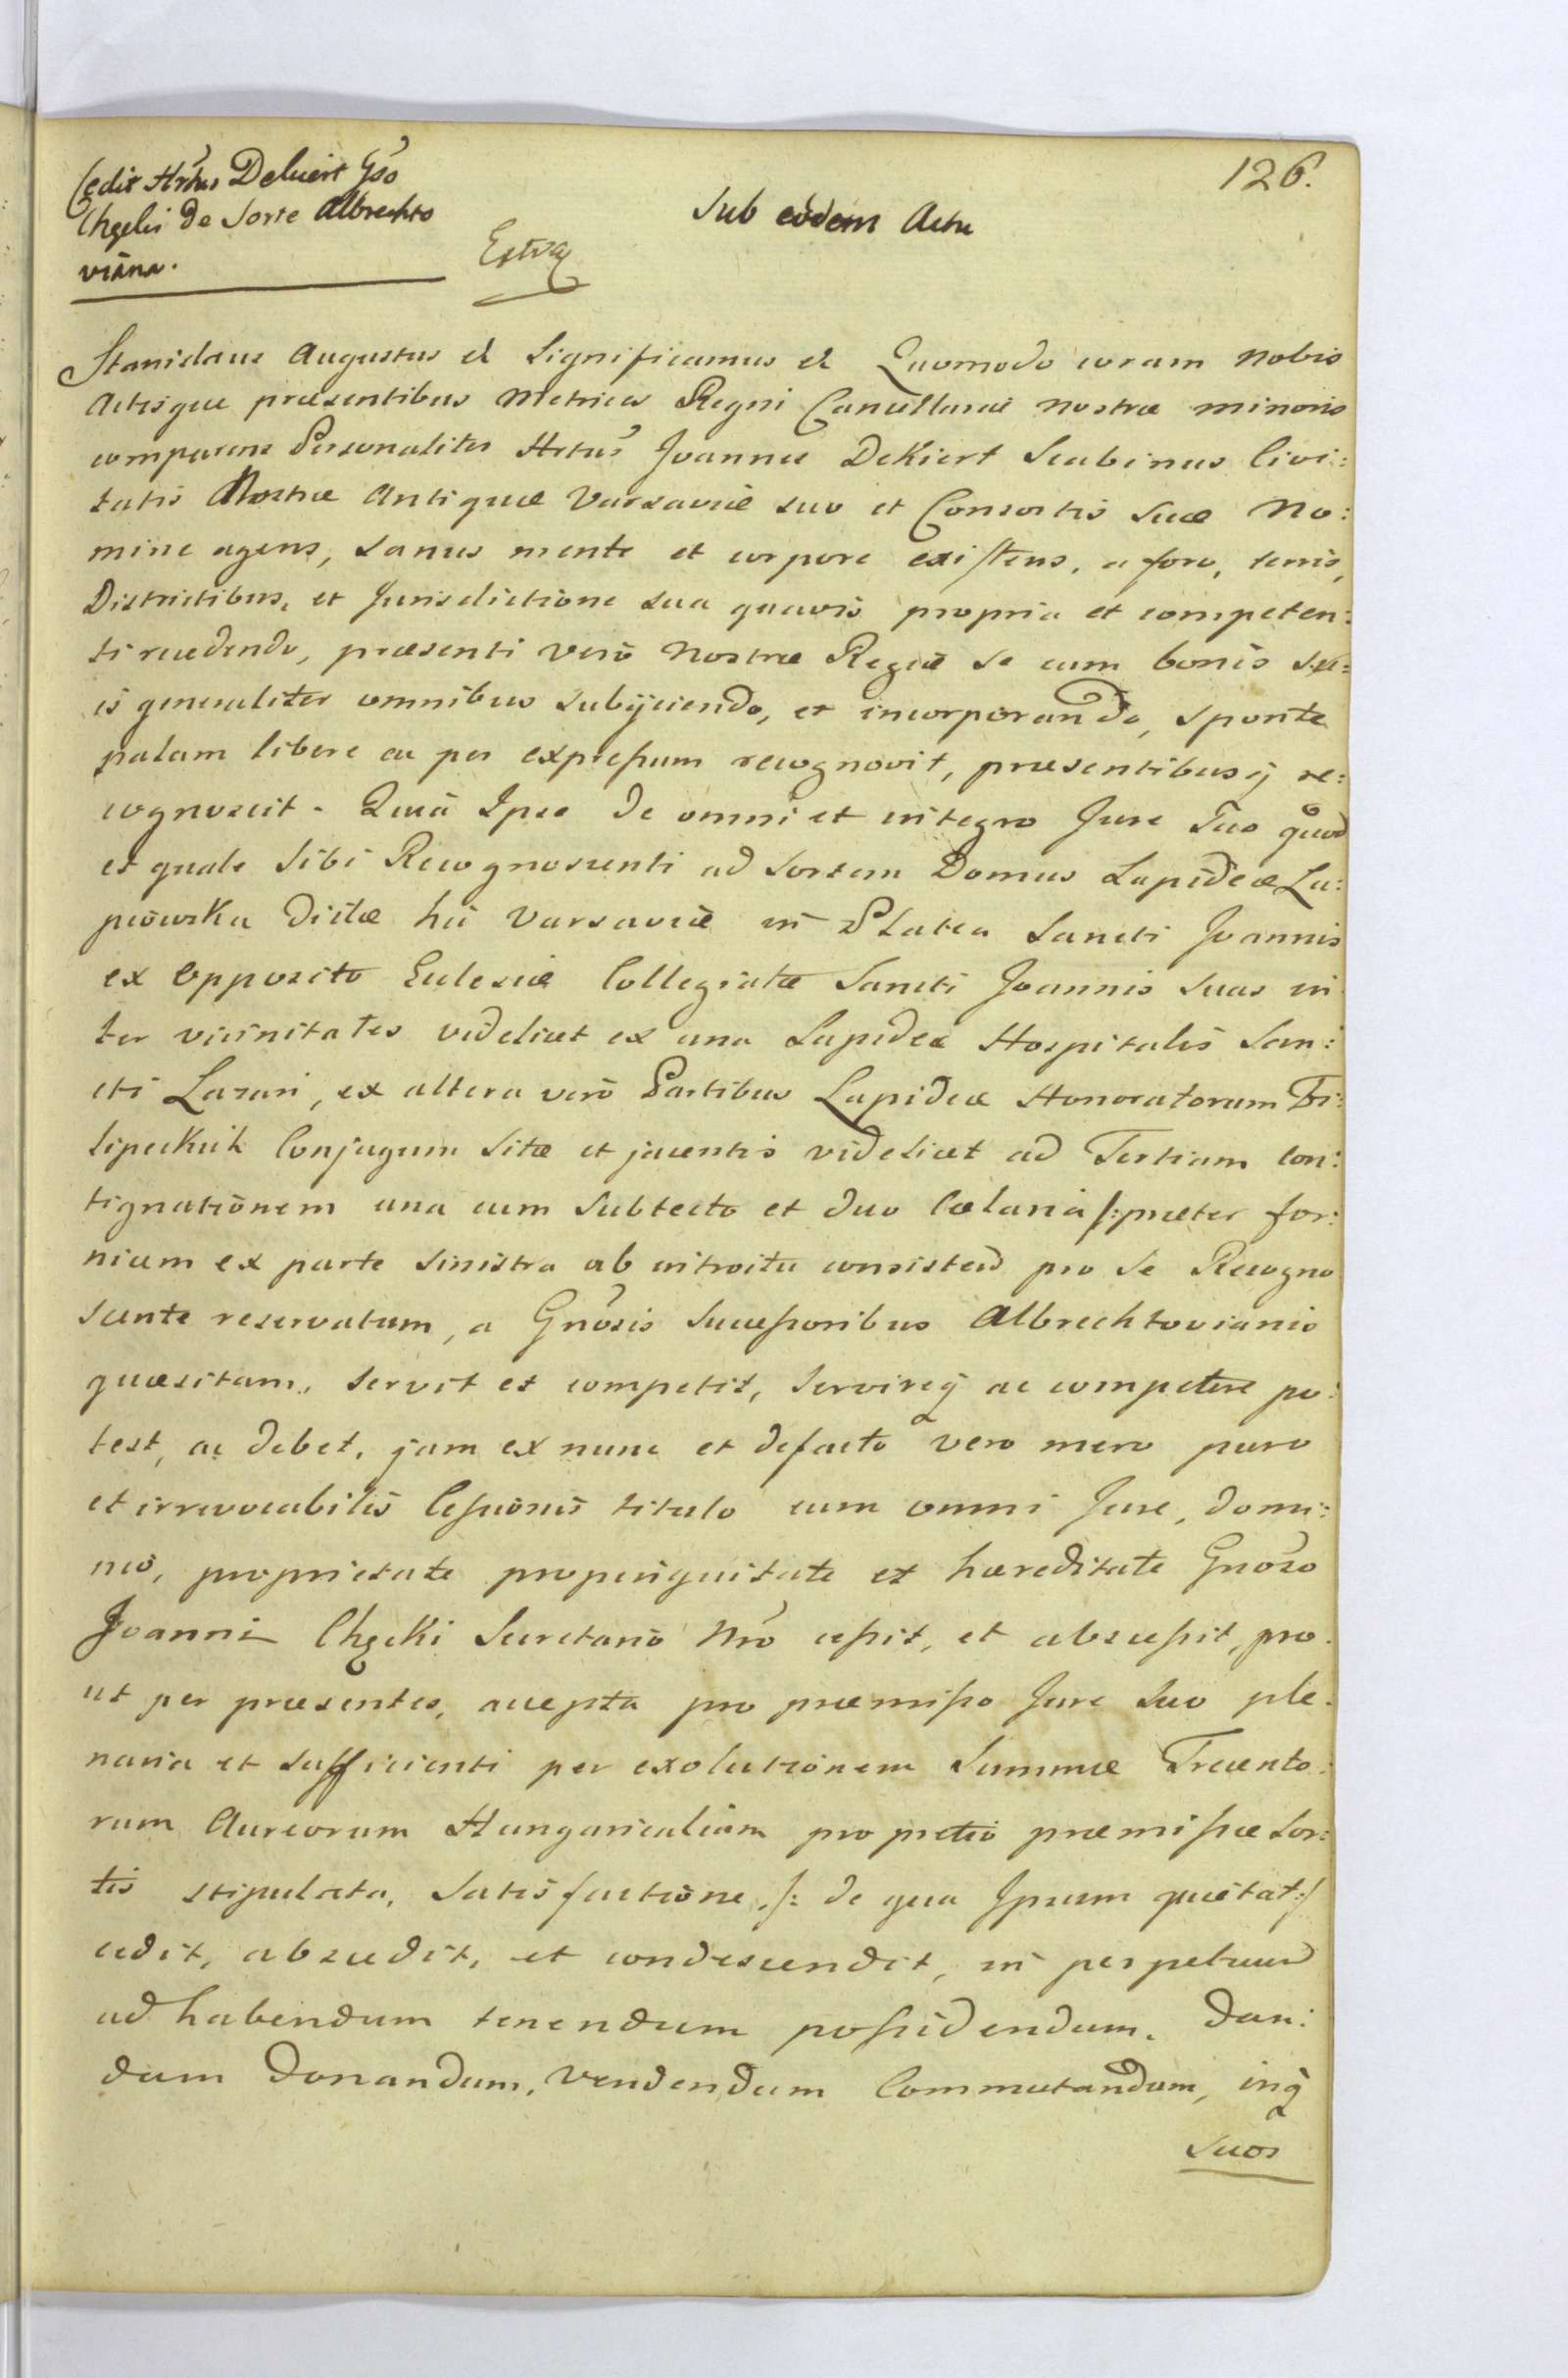 126.
Cedit Hrtus Dekiert Gso
Chęcki de Sorte Albrechto
viana.
Sub eodem Actu
Stanislaus Augustus et Significamus et Quomodo coram Nobis
Actisque præsentibus Metrices Regni Cancellariæ Nostræ minoris
comparens Personaliter Hrtus Joannes DeKiert Scabinus Civi:
tatis Nostræ Antiquæ Varsaviæ suo et Consortis suæ No:
mine agens, sanus mente et corpore existens, a foro, terris,
Districtibus, et Jurisdictione sua quavis propria et competen:
ti recedendo, præsenti vero Nostræ Regiæ se cum bonis su:
is generaliter omnibus subijciendo, et incorporando, sponte
palam libere ea per expressum recognovit, præsentibusq re:
cognoscit. Quia Ipse de omni et integro Jure Suo quod
et quale Sibi Recognoscenti ad Sortem Domus Lapideæ La:
piowska dictæ hic Varsaviæ in Platea Sancti Joannis
ex Opposito Eclesiæ Collegiatæ Sancti Joannis suas in
ter vicinitates videlicet ex una Lapideæ Hospitalis San:
cti Lazari, ex altera vero Partibus Lapideæ Honoratorum Fi:
lipeckich Conjugum sitæ et jacentis videlicet ad Tertiam con:
tignationem una cum subtecto et duo Cælaria /: præter for:
nicem ex parte sinistra ab introitu consisten pro se Recogno
scente reservatum, a Gnosis Successoribus Albrechtovianis
quæsitam, servit et competit, servireq ac competere po:
test, ac debet, jam ex nunc et defacto vero mero puro
et irrevocabilis Cessionis titulo cum omni Jure, domi:
nio, proprietate propinquitate et hæreditate Gnoso
Joanni Chęcki Secretario Nro cessit, et abscessit, pro:
ut per præsentes, accepta pro præmisso Jure suo ple:
naria et sufficienti per exolutionem Summæ Trecento:
rum Aureorum Hungaricalium pro pretio præmissæ Sor:
tis stipulata, satisfactione /: de qua Ipsum quietat :/
cedit, abscedit, et condescendit, in perpetuum
ad habendum tenendum possidendum, dan:
dum donandum, vendendum Commutandum, inq
suos